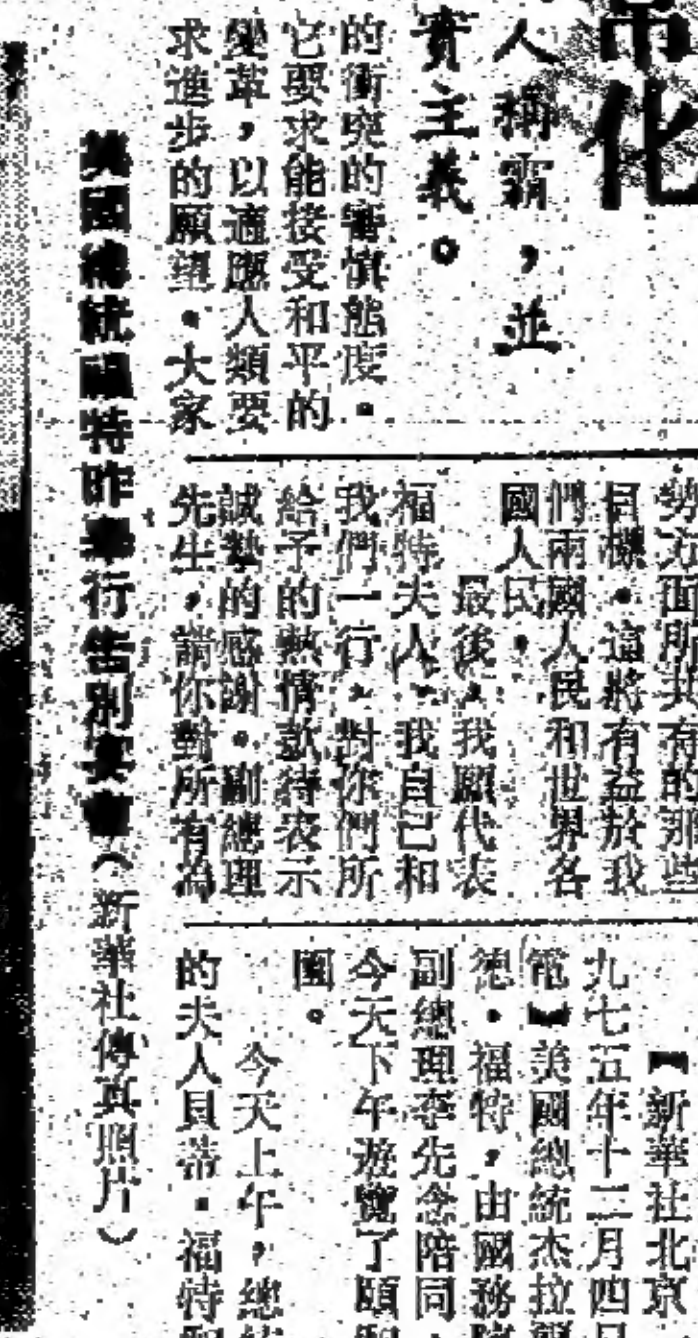 常化
人稱霸，並
實主義。
的衝突的審慎態度。
它要求能接受和平的
變革，以適應人類要
求進步的願望。大家
勢方面所共有的那些
目標。這將有益於我
們兩國人民和世界各
國人民。
最後，我願代表
福特夫人、我自己和
我們一行，對你們所
給予的熱情款待表示
誠摯的感謝。副總理
先生，請你對所有為
【新華社北京
九七五年十二月四日
電】美國總統杰拉爾
德·福特，由國務院
副總理李先念陪同，
今天下午遊覽了頤和
園。
今天上午，總統
的夫人貝蒂·福特和
美國總統福特昨舉行告別宴會（新華社傳真照片）